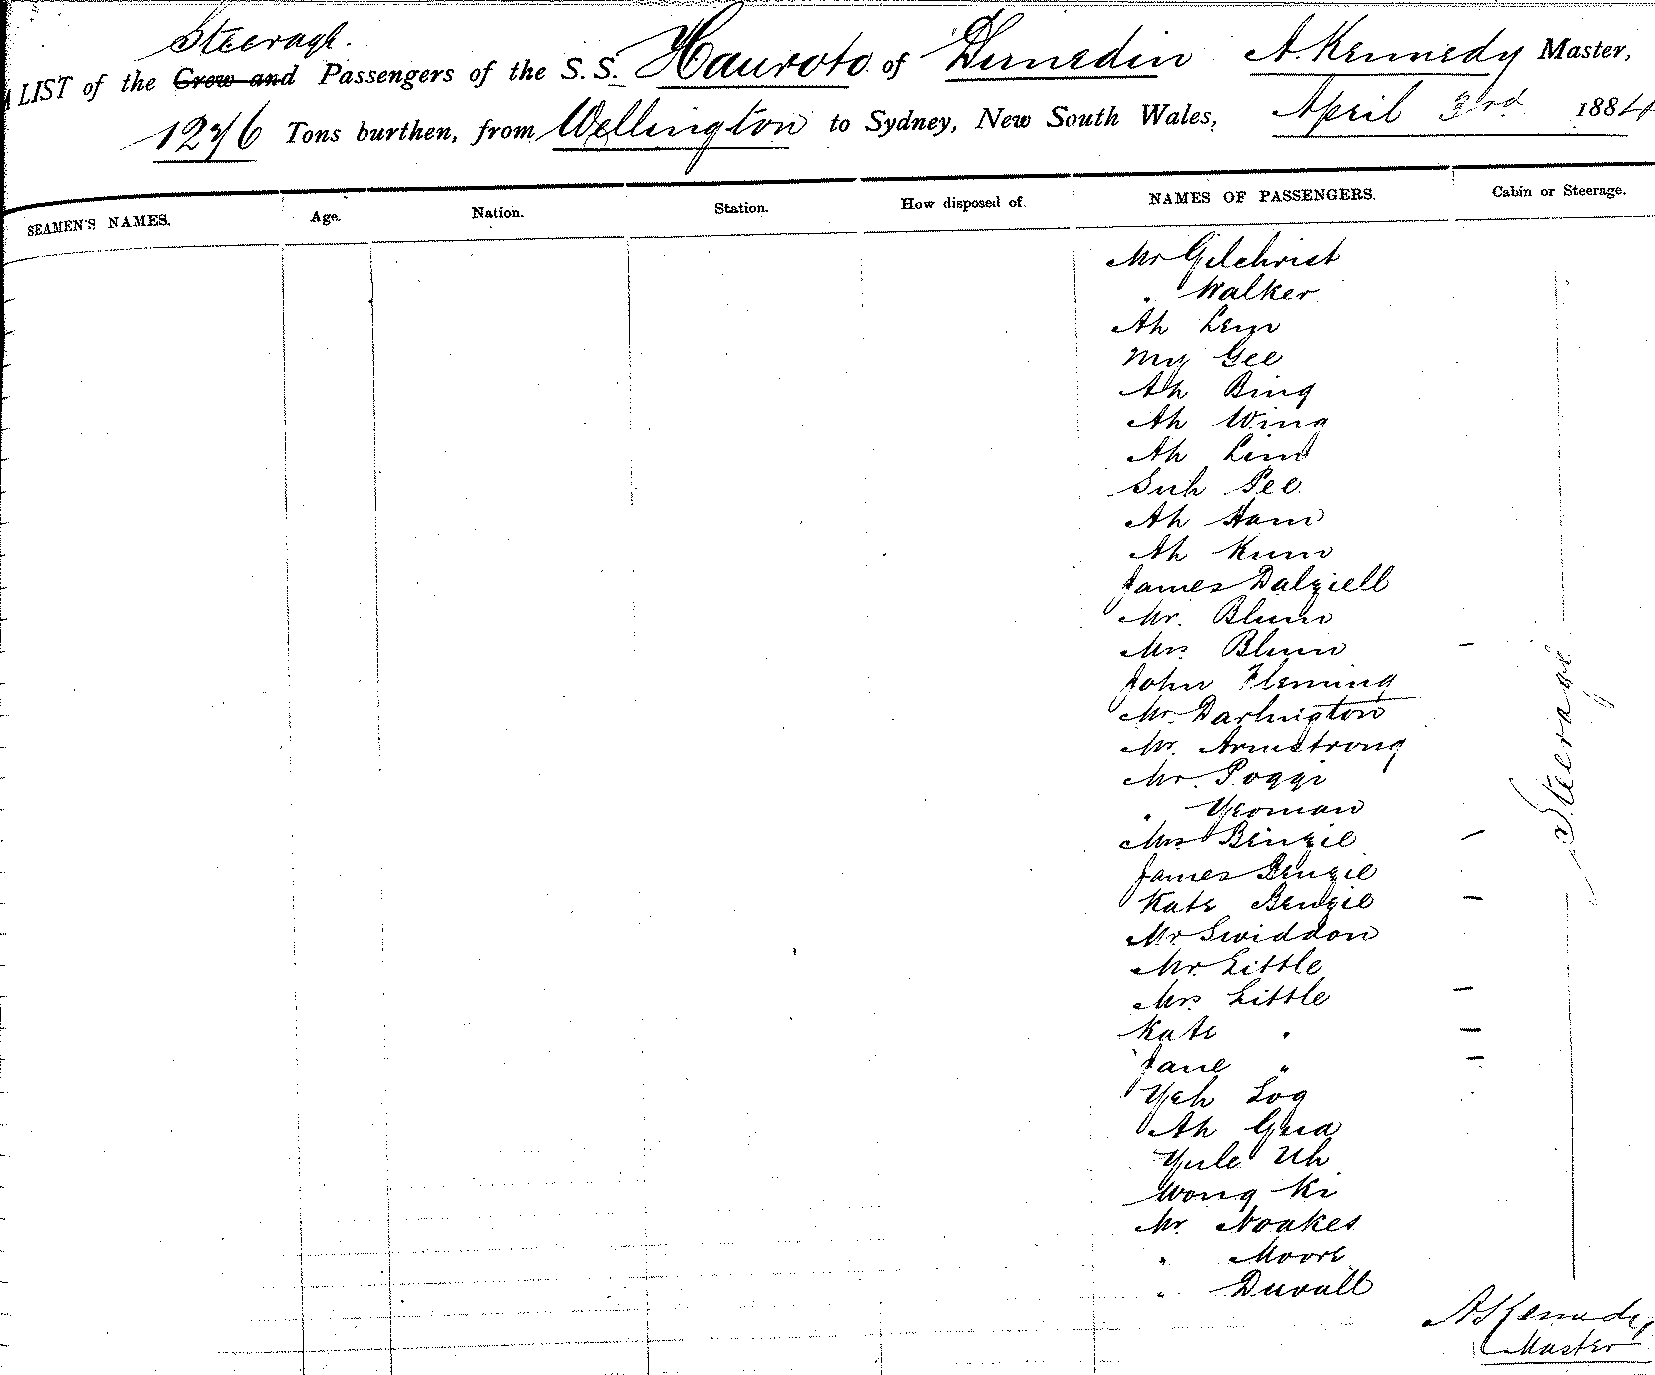 Steerage.
LIST of the Crew and Passengers of the S.S. Hauroto of Dunedin A. Kennedy Master,
1276 Tons burthen, from Wellington to Sydney, New South Wales, April 3rd 1884
SEAMEN'S NAMES. Age. Nation. Station. How disposed of. NAMES OF PASSENGERS. Cabin or Steerage.
Mr Gilchrist
" Walker
Ah Lem
My Gee
Ah Bing
Ah Wing
Ah Lim
Suh Pee
Ah Ham
Ah Kum
James Dalziell
Mr. Blum
Mrs Blum
John Fleming
Mr. Darlington
Mr. Armstrong
Mr. Poggi
" Yeoman
Mrs Benzie
James Benzie
Kate Benzie
Mr Swiddon
Mr. Little
Mrs Little
Kate "
Jane "
Yeh Log
Ah
Yule Uh
Wong Ki
Mr. Noakes
" Moore
" Duvall
Steerage
A Kennedy
Master